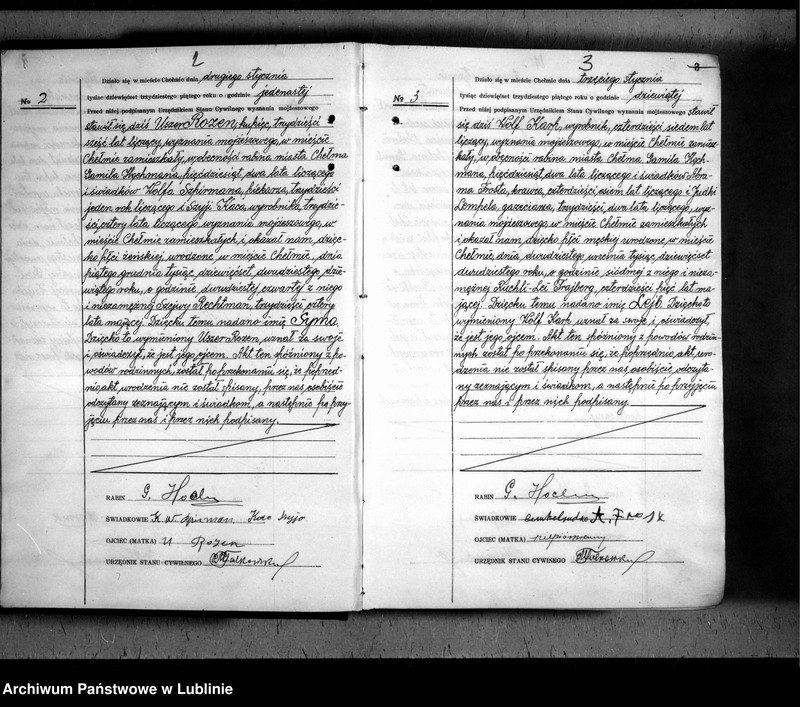 2
Działo się w mieście Chełmie dnia drugiego stycznia
No 2
tysiąc dziewięćset trzydziestego piątego roku o godzinie jedenastej
Przed niżej podpisanym Urzędnikiem Stanu Cywilnego wyznania mojżeszowego
stawił się dziś Uszer Rozen, kupiec, trzydzieści
sześć lat liczący, wyznania mojżeszowego, w mieście
Chełmie zamieszkały, w obecności rabina miasta Chełma
Gamila Hochmana, pięćdziesiąt dwa lata liczącego
i świadków Wolfa Szpirmana, piekarza, trzydzieści
jeden rok liczącego i Szyji Kaca, wyrobnika, trzydzie-
ści cztery lata liczącego, wyznania mojżeszowego, w
mieście Chełmie zamieszkałych, i okazał nam, dziec-
ko płci żeńskiej, urodzone w mieście Chełmie, dnia
piątego grudnia tysiąc dziewięćset dwudziestego dzie-
wiątego roku, o godzinie dwudziestej czwartej z niego
i niezamężnej Szejwy Rechtman, trzydzieści cztery
lata mającej. Dziecku temu nadano imię Syma.
Dziecko to wymieniony Uszer Rozen, uznał za swoje
i oświadczył, że jest jego ojcem. Akt ten spóźniony z po-
wodów rodzinnych, został po przekonaniu się, że poprzed-
nio akt urodzenia nie został spisany, przez nas osobiście
odczytany zeznającym i świadkom, a następnie po przy-
jęciu przez nas i przez nich podpisany.
RABIN G. Hochm
ŚWIADKOWIE K. W. Szpirman. Kac Szyjo
OJCIEC (MATKA) U Rozen
URZĘDNIK STANU CYWILNEGO
3
3
Działo się w mieście Chełmie dnia trzeciego stycznia
No 3
tysiąc dziewięćset trzydziestego piątego roku o godzinie dziewiątej
Przed niżej podpisanym Urzędnikiem Stanu Cywilnego wyznania mojżeszowego stawił
się dziś Wolf Karp, wyrobnik, czterdzieści siedem lat
liczący, wyznania mojżeszowego, w mieście Chełmie zamiesz-
kały, w obecności rabina miasta Chełma Gamila Hoch-
mana, pięćdziesiąt dwa lata liczącego i świadków Abra-
ma Frosta, krawca, czterdzieści osiem lat liczącego i Judki
Lempela, gazeciarza, trzydzieści dwa lata liczącego, wyz-
nania mojżeszowego, w mieście Chełmie zamieszkałych
i okazał nam, dziecko płci męskiej urodzone w mieście
Chełmie, dnia dwudziestego września tysiąc dziewięćset
dwudziestego roku, o godzinie siódmej z niego i nieza-
mężnej Ruchli-Lei Frajberg, czterdzieści pięć lat ma-
jącej. Dziecku temu nadano imię Lejb. Dziecko to
wymieniony Wolf Karp, uznał za swoje i oświadczył,
że jest jego ojcem. Akt ten spóźniony z powodów rodzin-
nych został po przekonaniu się, że poprzednio akt uro-
dzenia nie został spisany przez nas osobiście odczyta-
ny zeznającym i świadkom, a następnie po przyjęciu
przez nas i przez nich podpisany.
RABIN G. Hochm
ŚWIADKOWIE
OJCIEC (MATKA) niepiśmienny
URZĘDNIK STANU CYWILNEGO
Archiwum Państwowe w Lublinie